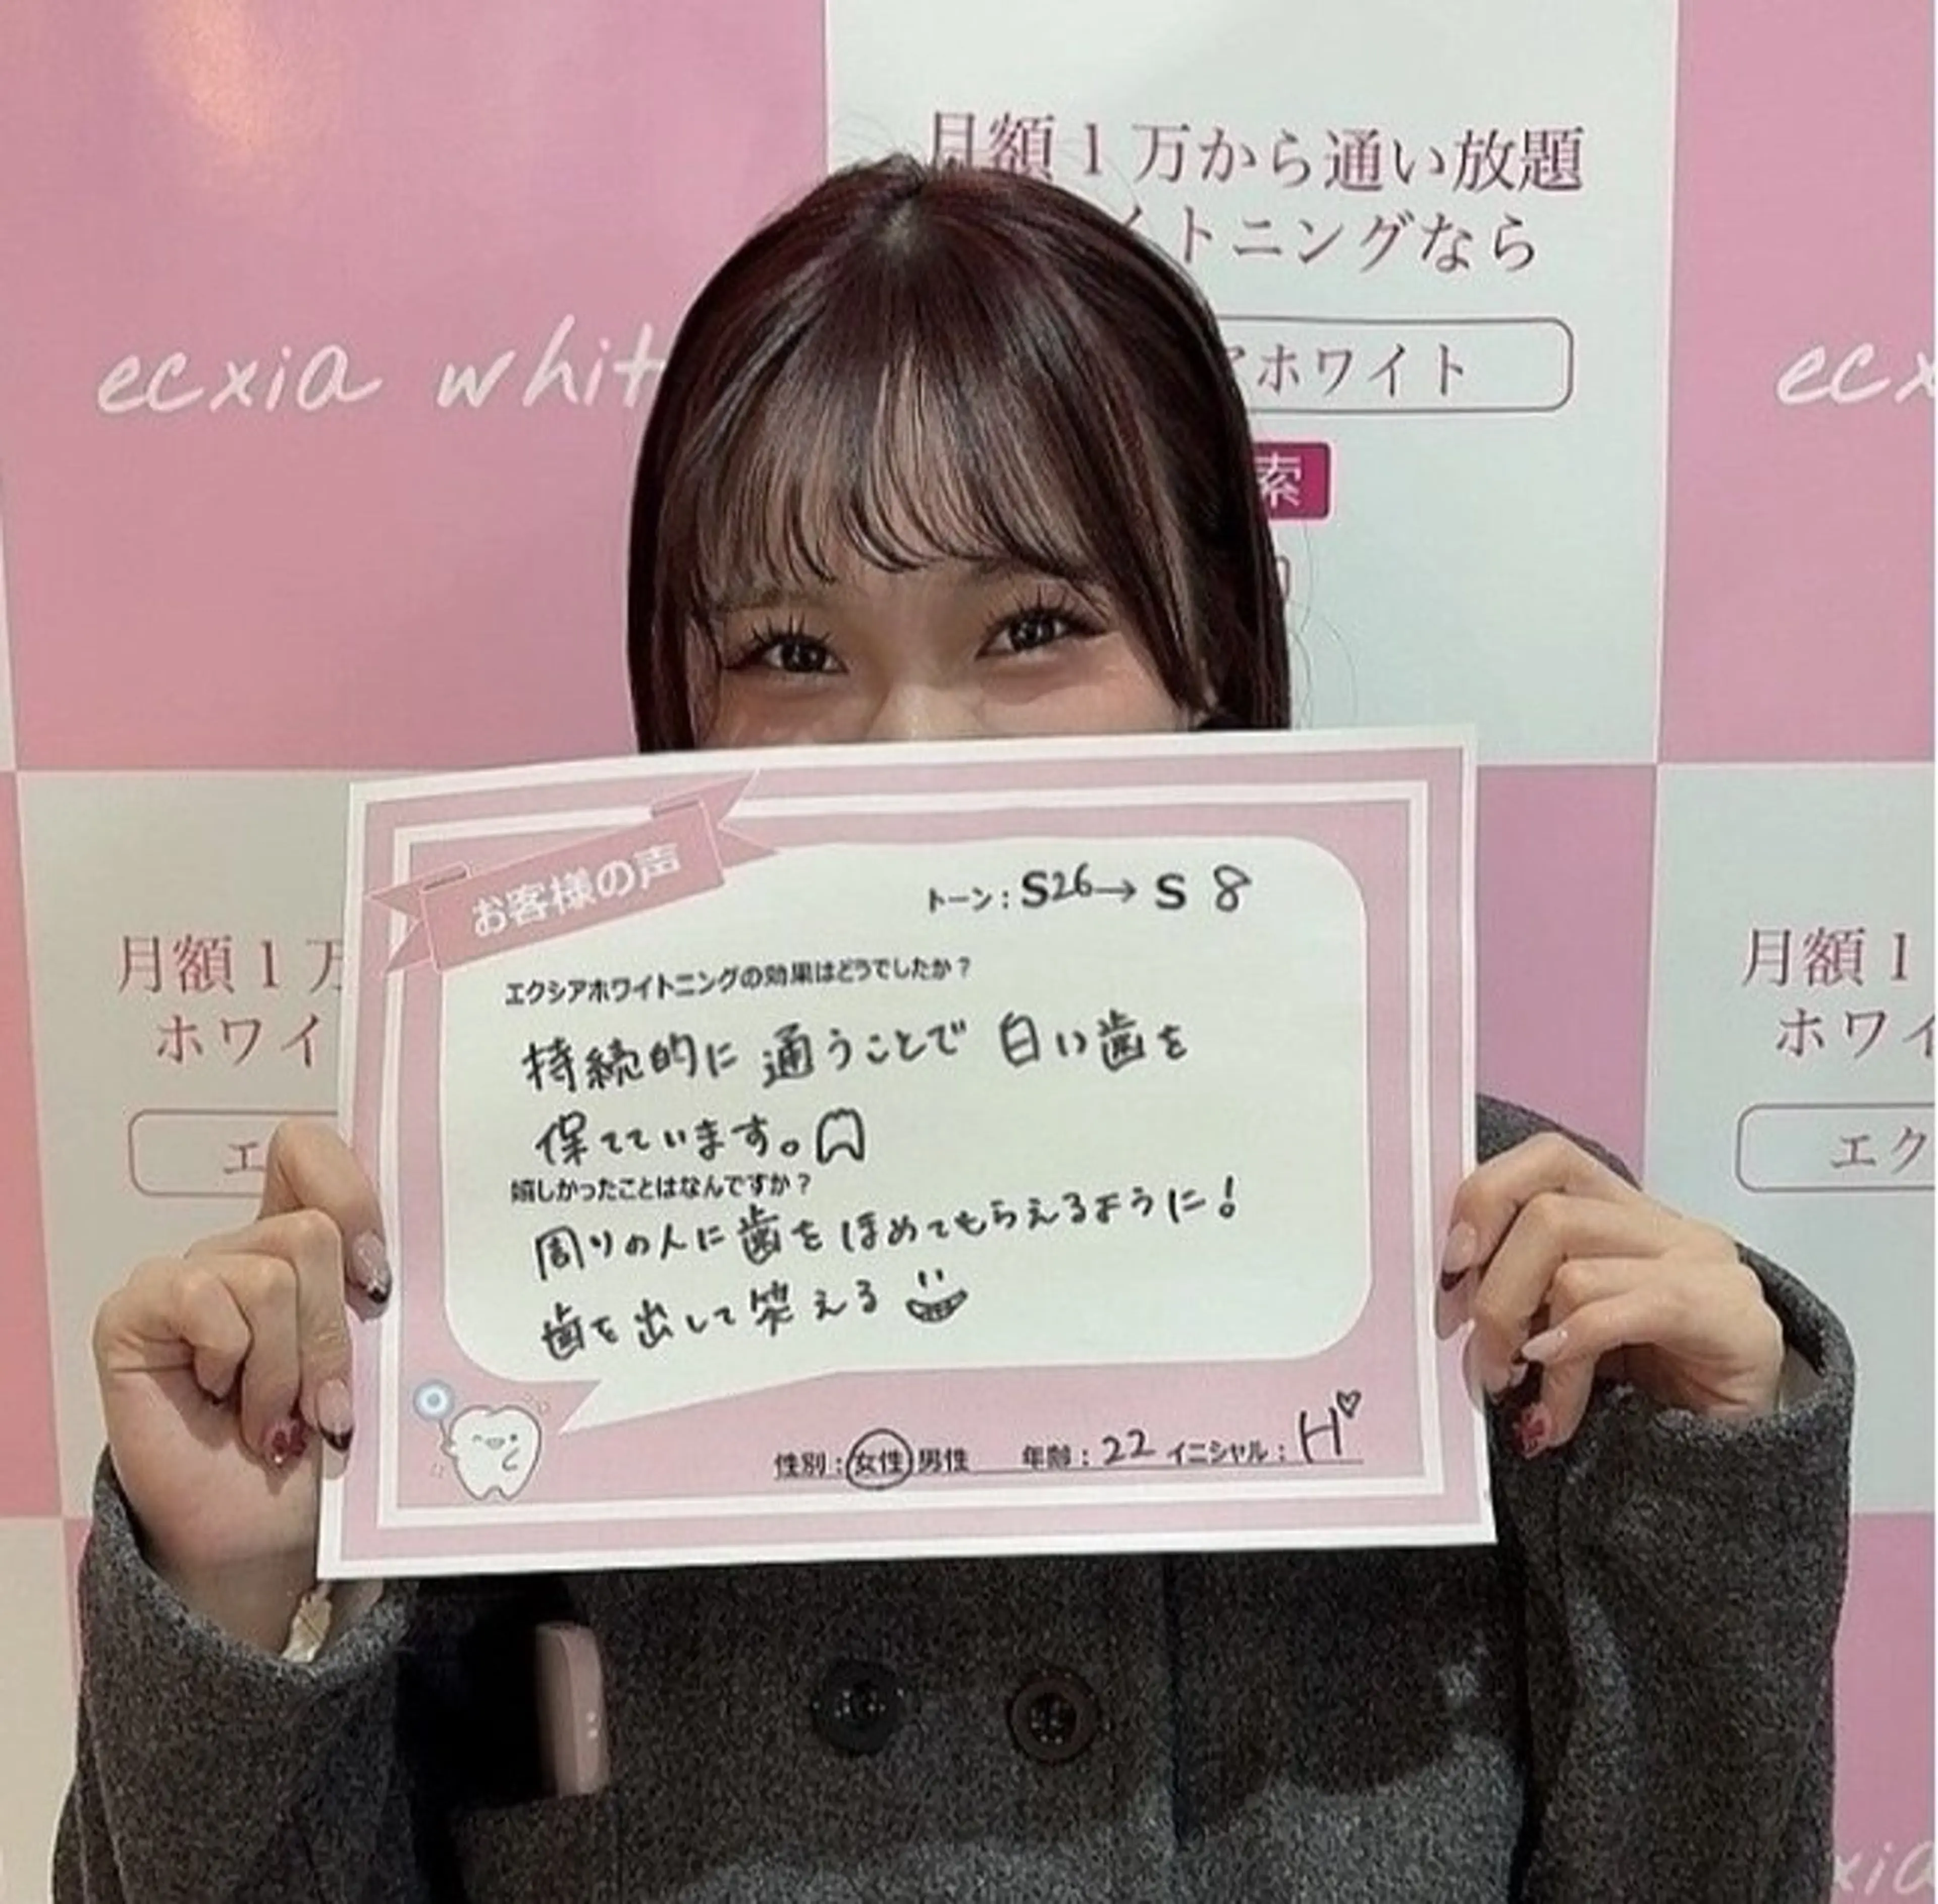 月額1万から通い放題
イトニングなら
ecxia whit
アホワイト
ecx
索
お客様の声
トーン:S26→S 8
エクシアホワイトニングの効果はどうでしたか?
持続的に通うことで白い歯を
保てています。
嬉しかったことはなんですか?
周りの人に歯をほめてもらえるように!
歯を出して笑える
性別:女性 男性 年齢:22 イニシャル:H♡
月額1万
ホワイ
エ
月額1
ホワイ
エク
xia